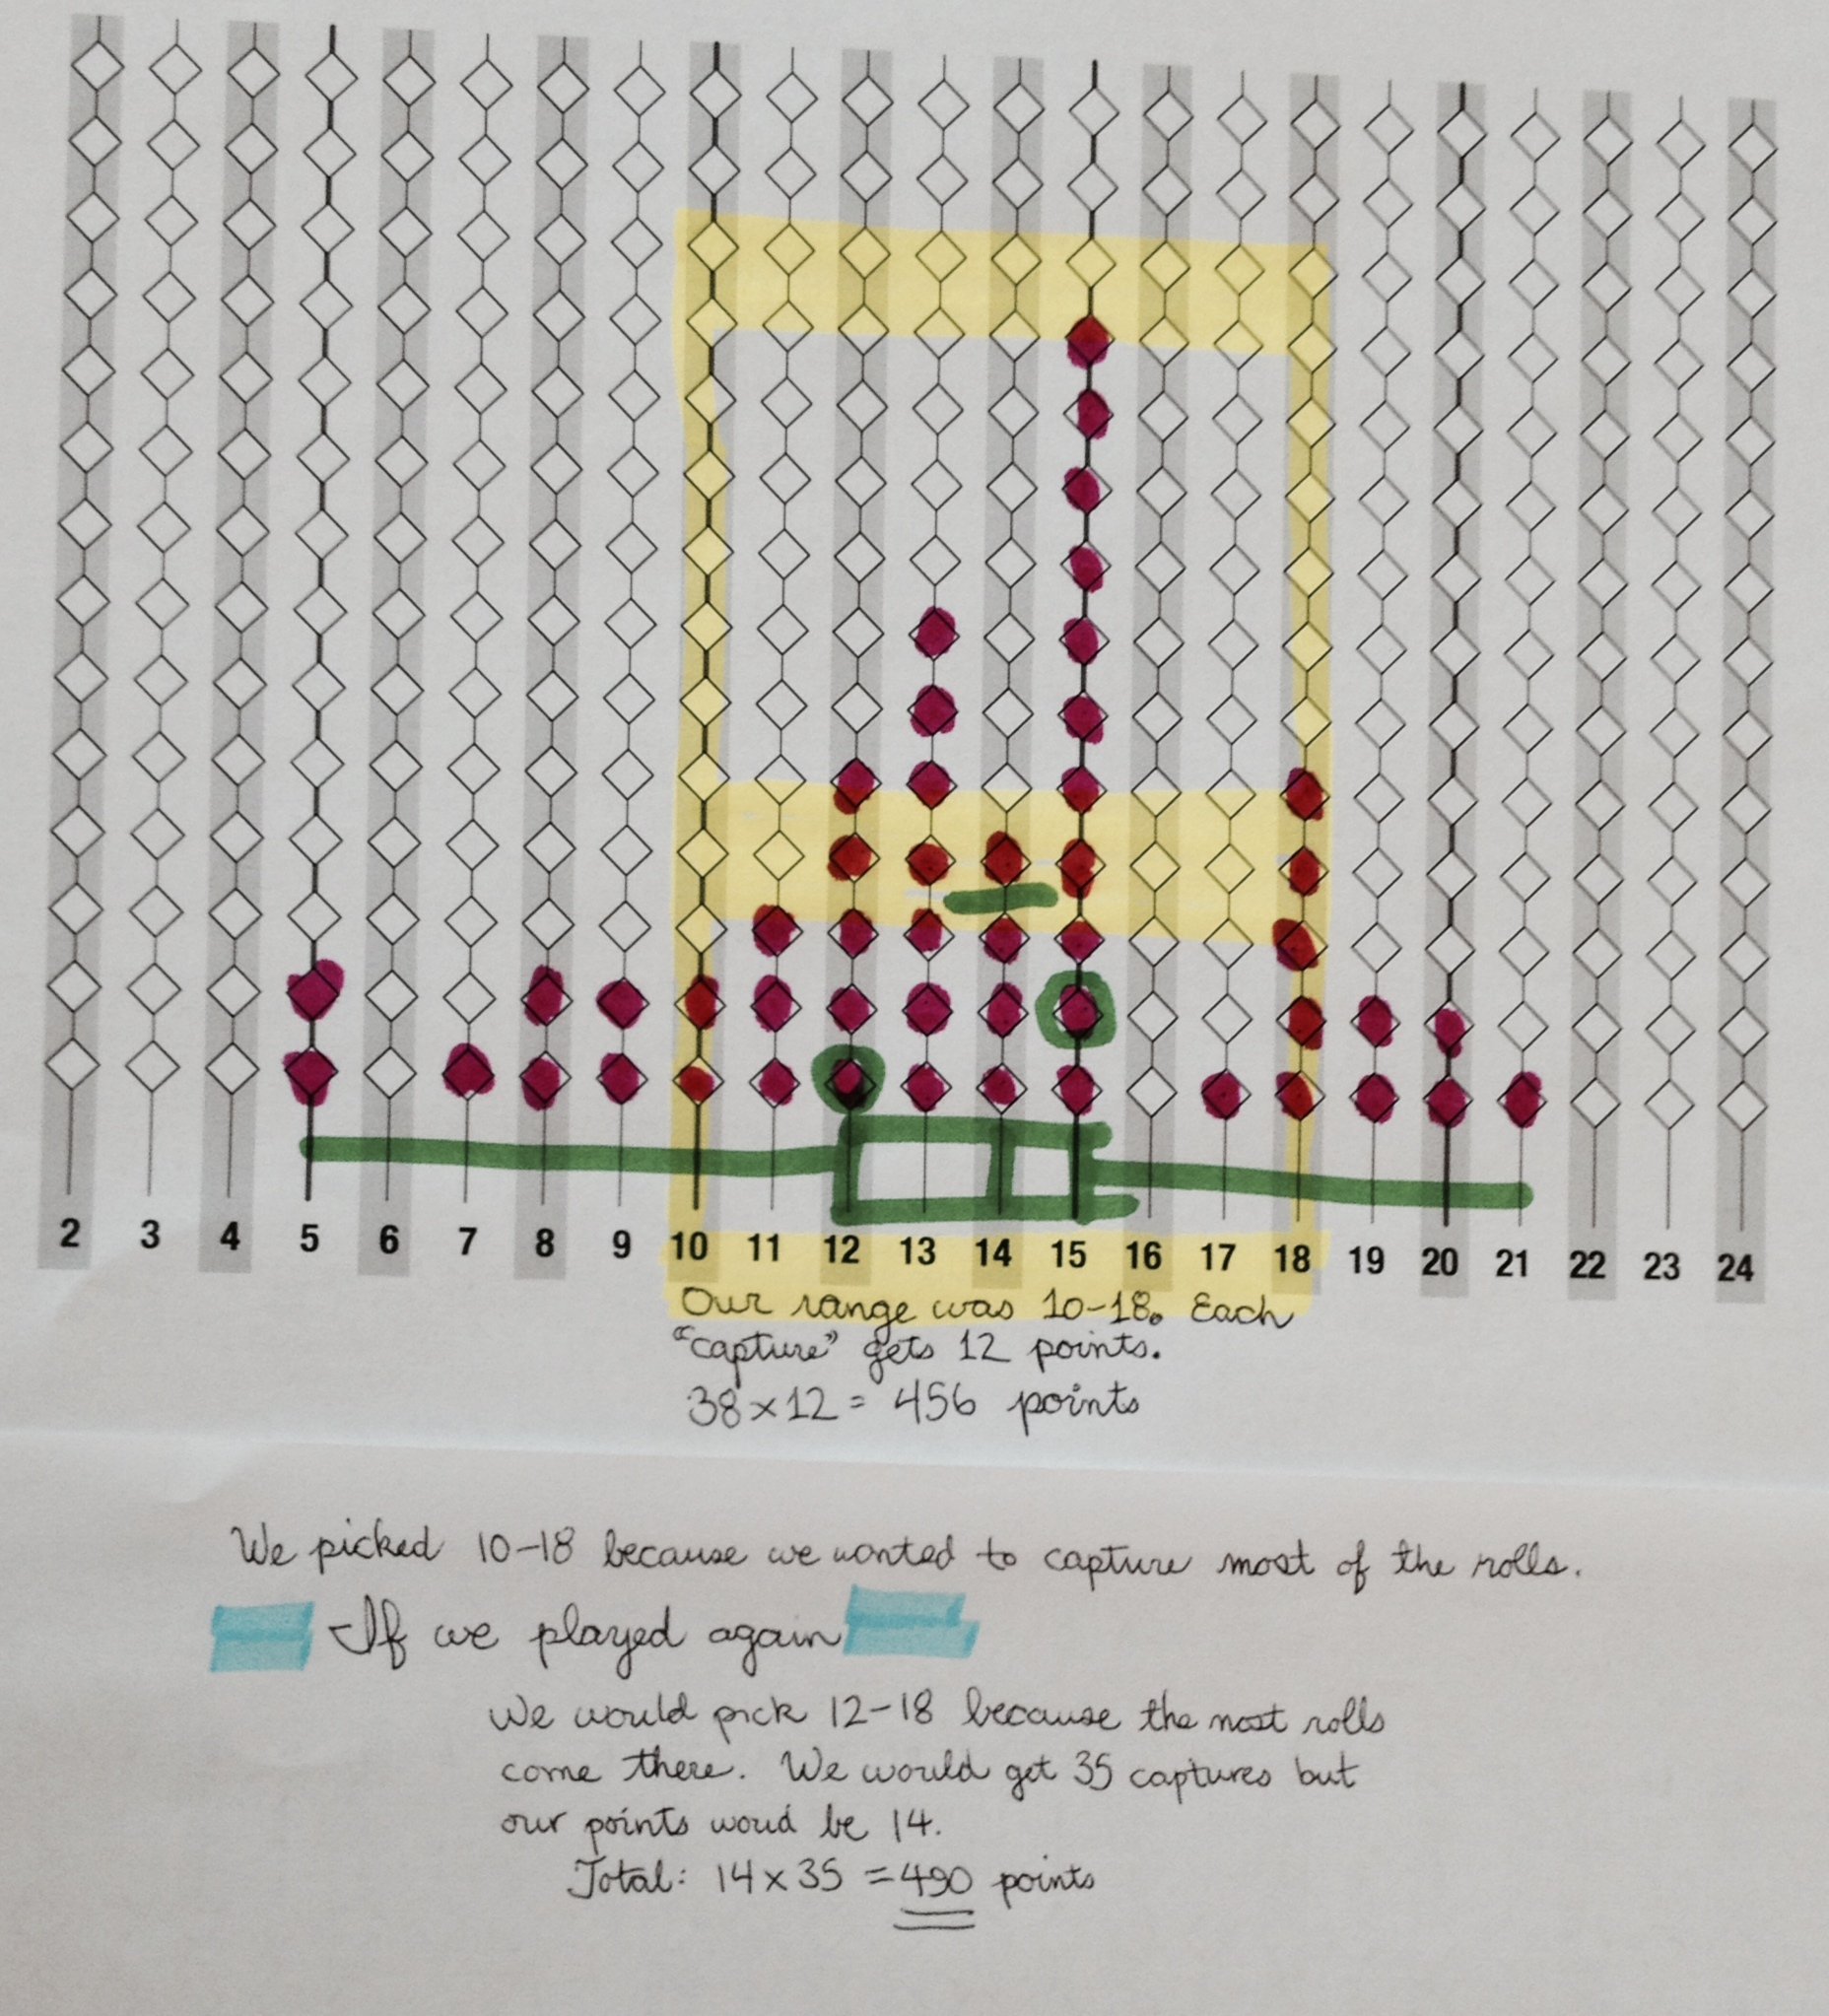 2 3 4 5 6 7 8 9 10 11 12 13 14 15 16 17 18 19 20 21 22 23 24
Our range was 10-18. Each
"capture" gets 12 points.
38 x 12 = 456 points
We picked 10-18 because we wanted to capture most of the rolls.
If we played again
We would pick 12-18 because the most rolls
come there. We would get 35 captures but
our points woud be 14.
Total: 14 x 35 = 490 points